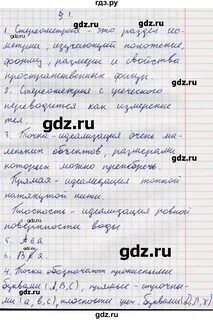 gdz.ru
§ 1
1. Стереометрия - это раздел гео-
метрии, изучающий положение,
форму, размеры и свойства
пространственных фигур.
2. Стереометрия с греческого
переводится как измерение
тел.
3. Точки - идеализация очень ма-
леньких объектов, размерами
которых можно пренебречь.
Прямая - идеализация тонкой
натянутой нити.
Плоскость - идеализация ровной
поверхности воды
5. A ∈ a
6. B ∉ a.
4. Точки обозначают прописными
буквами (A, B, C), прямые - строчны-
ми (a, b, c), плоскости греч. буквами
GDZ.RU
GDZ.RU
GDZ.RU
GDZ.RU
GDZ.RU
GDZ.RU
GDZ.RU